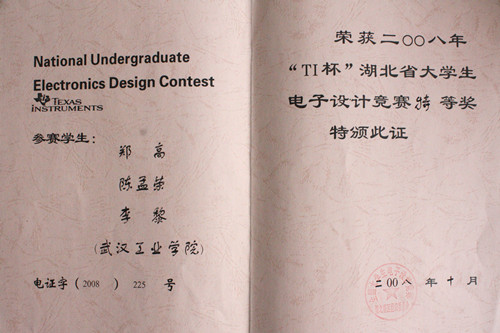 National Undergraduate
Electronics Design Contest
TEXAS
INSTRUMENTS
参赛学生：
郑高
陈孟荣
李黎
（武汉工业学院）
电证字（2008）225 号
荣获二〇〇八年
“TI杯”湖北省大学生
电子设计竞赛特等奖
特颁此证
二〇〇八年十月